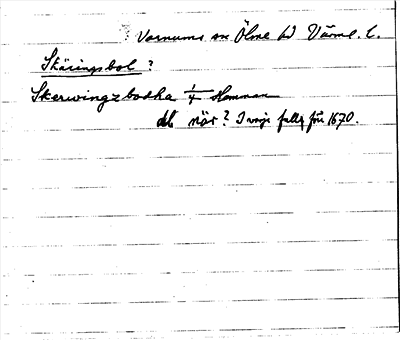 Varnums sn Ölme hd Värml. l.
Skäringsbol ?
Skerwingzbodha 1/4 Hemman
dl när? I varje fall före 1670.